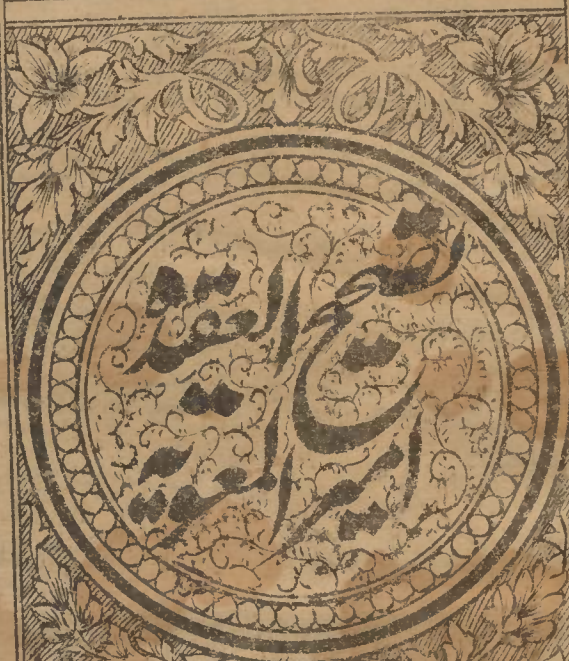 تصحیح العقیدة
امیر المعویة